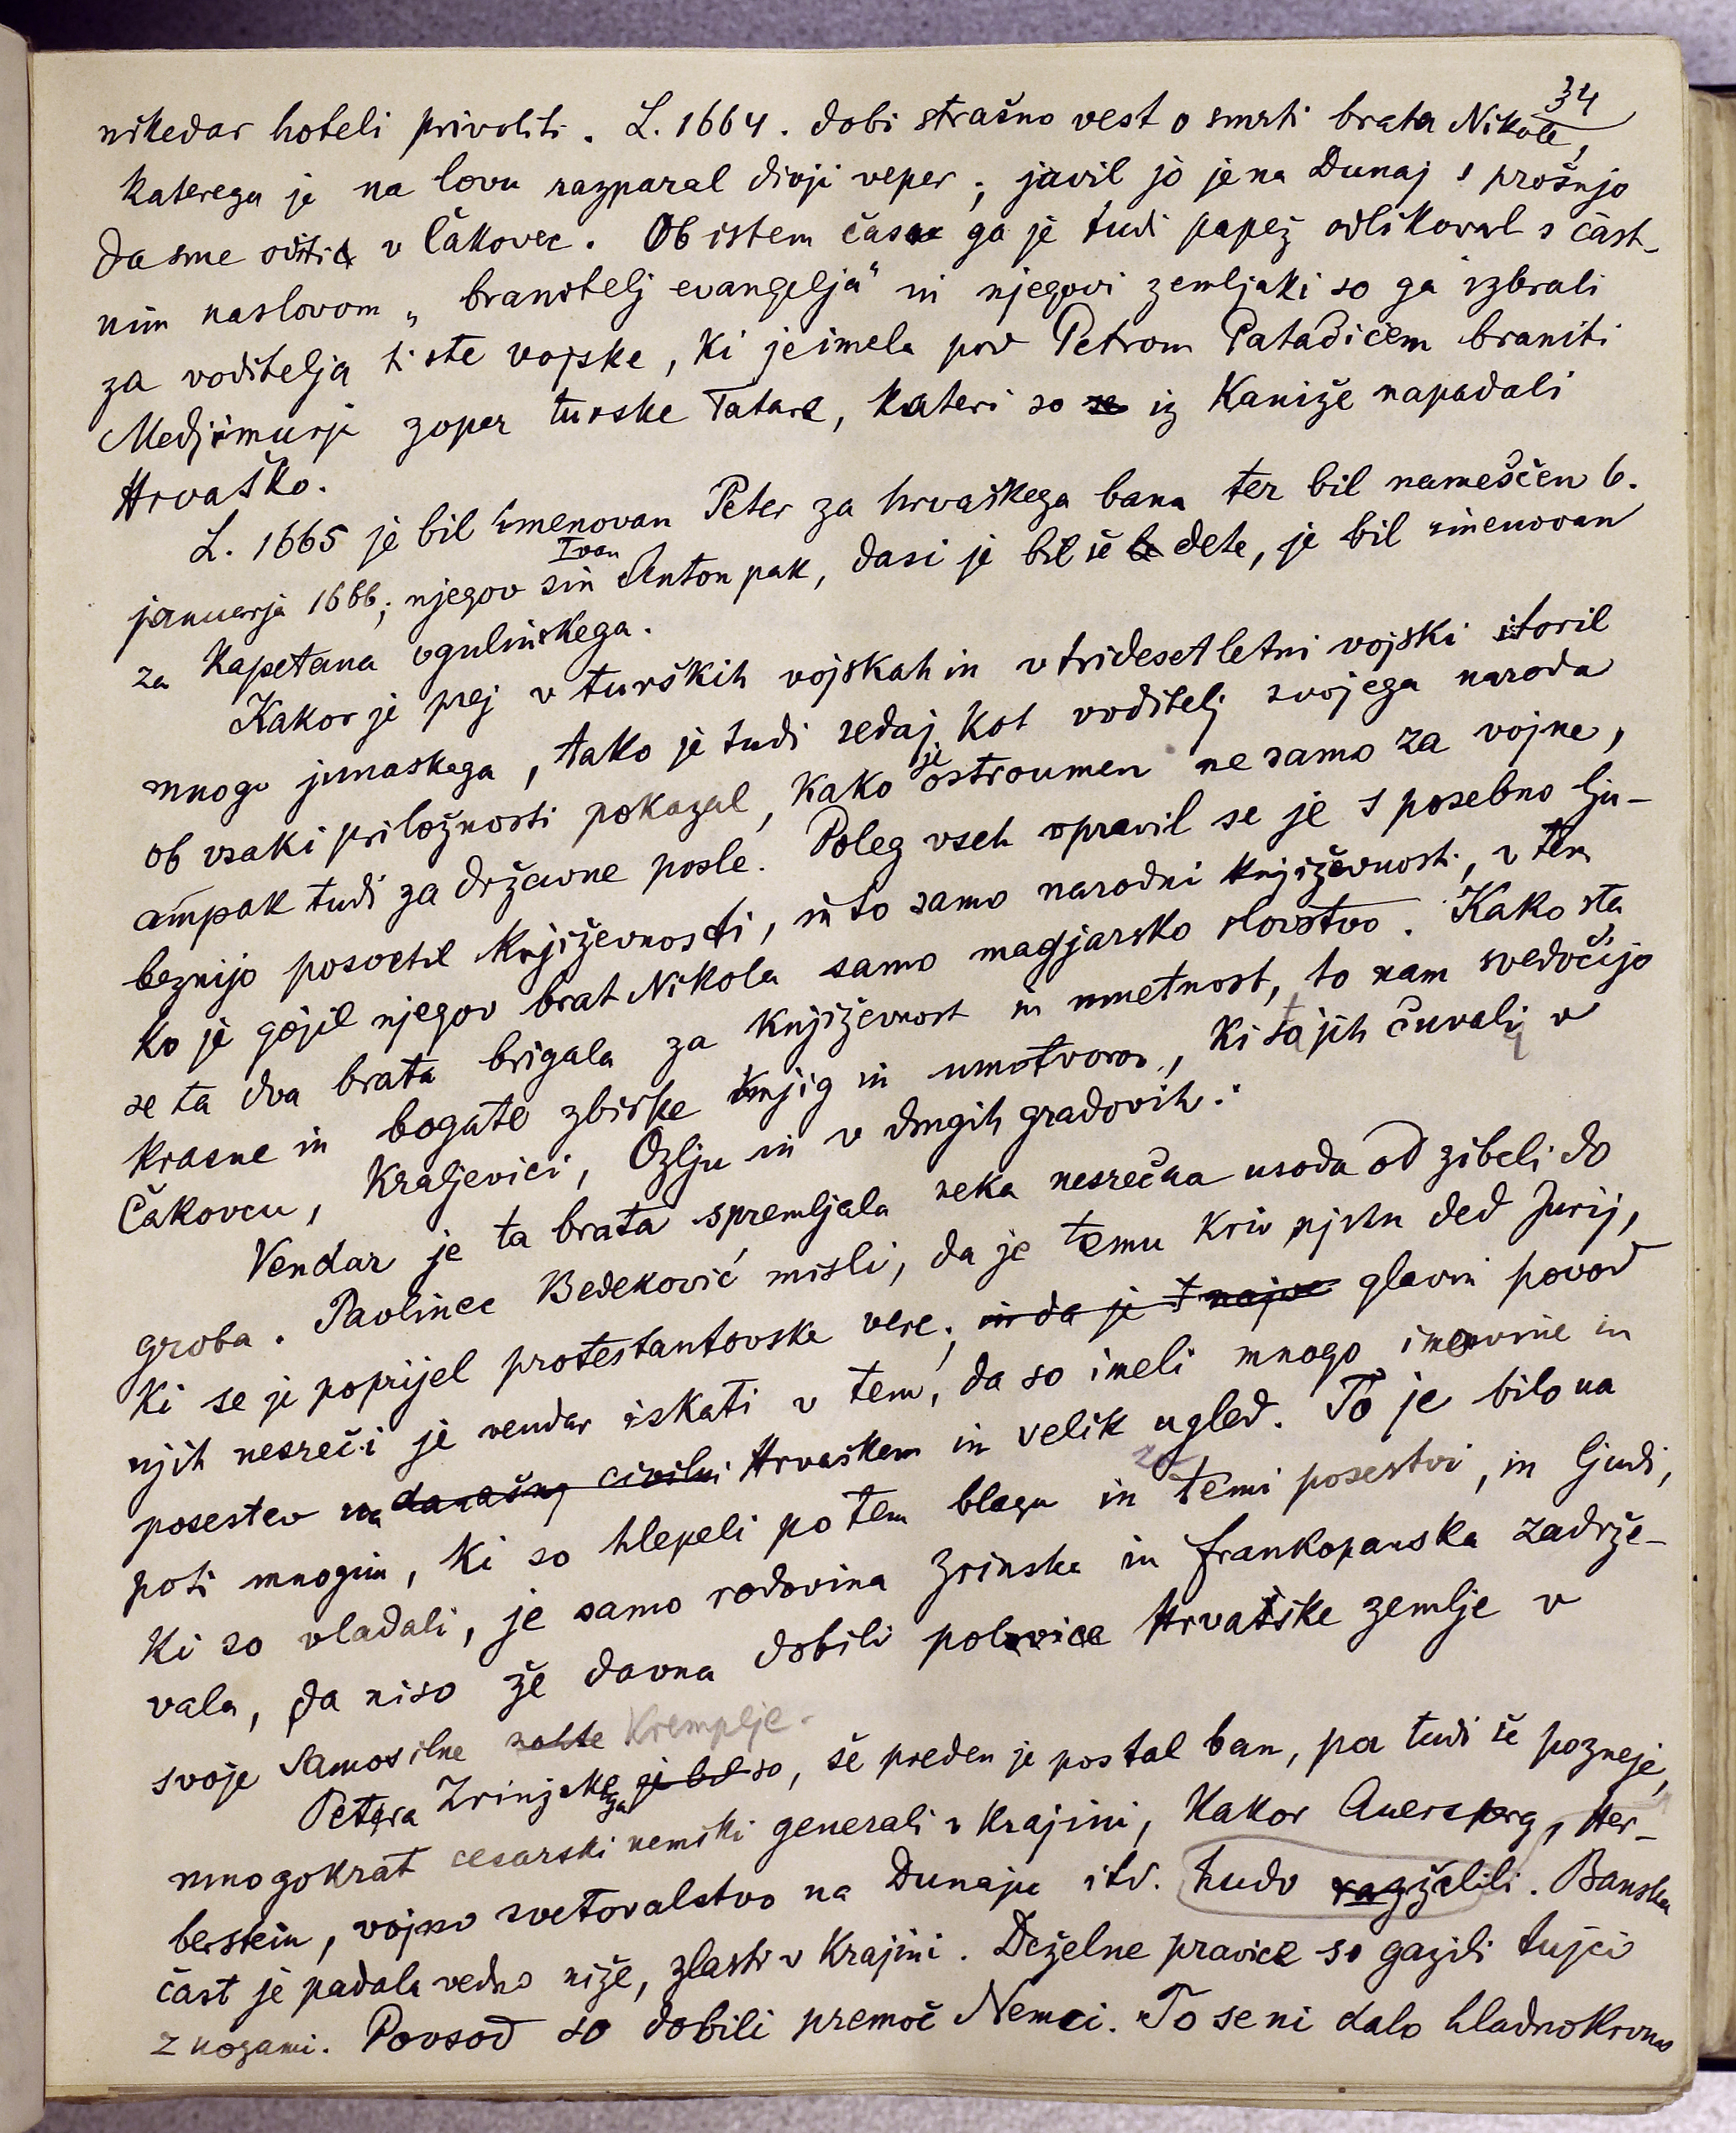 34
nikedar hoteli privoliti. L. 1664. dobi strašno vest o smrti brata Nikole,
katerega je na lovu razparal divji veper; javil jo je na Dunaj s prošnjo
da sme oditi v Čakovec. Ob istem času ga je tudi papež odlikoval s čast-
nim naslovom „branitelj evangelja" in njegovi zemljaki so ga izbrali
za voditelja tiste vojske, ki je imela pod Petrom Patačićem braniti
Medjimurje zoper turske Tatare, kateri so se iz Kaniže napadali
Hrvaško.
L. 1665 je bil imenovan Peter za hrvaškega bana ter bil nameščen 6.
januarja 1666; njegov sin Ivan Anton pak, dasi je bil še le dete, je bil imenovan
za kapetana ogulinskega.
Kakor je prej v turških vojskah in v tridesetletni vojski storil
mnogo junaskega, tako je tudi sedaj kot voditelj svojega naroda
ob vsaki priložnosti pokazal, kako je ostroumen ne samo za vojne,
ampak tudi za državne posle. Poleg vseh opravil se je s posebno lju-
beznijo posvetil književnosti, in to samo narodni književnosti, v tem
ko je gojil njegov brat Nikola samo magjarsko slovstvo. Kako sta
se ta dva brata brigala za književnost in umetnost, to nam svedočijo
krasne in bogate zbirke knjig in umotvorov, ki sta jih čuvala v
Čakovcu, Kraljevici, Ozlju in v drugih gradovih.
Vendar je ta brata spremljala neka nesrečna usoda od zibeli do
groba. Pavlinec Bedeković misli, da je temu kriv njihn ded Jurij,
ki se je poprijel protestantovske vere; in da je t najve glavni povod
njih nesreči je vendar iskati v tem, da so imeli mnogo imovine in
posestev na današnj civilni Hrvaškem in velik ugled. To je bilo na
poti mnogim, ki so hlepeli po tem blagu in za temi posestvi, in ljudi,
ki so vladali, je samo rodovina Zrinska in frankopanska zadrže-
vala, da niso že davna dobili polovice Hrvaške zemlje v
svoje samosilne Kremplje.
Petra Zrinjskega je bil so, še preden je postal ban, pa tudi še pozneje,
mnogokrat cesarski nemški generali v Krajini, kakor Auersperg, Her-
berstein, vojno svetovalstvo na Dunaju itd. hudo razžalili. Banska
čast je padala vedno niže, zlasti v Krajini. Deželne pravice so gazili tujci
z nogami. Povsod so dobili premoč Nemci. To se ni dalo hladnokrvno